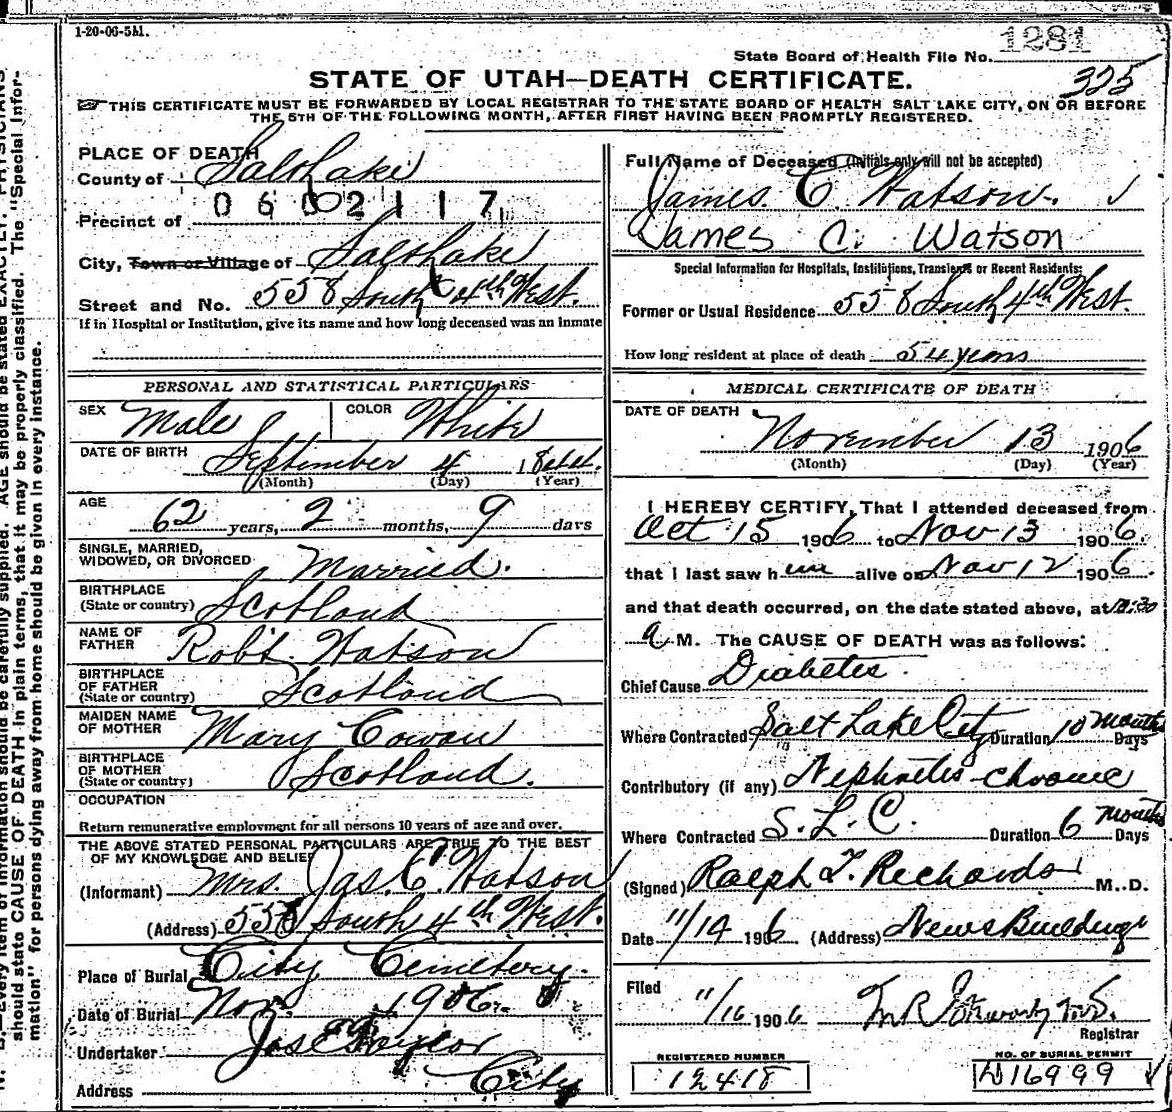 1-20-06-5M.
State Board of Health File No. 1281
325
STATE OF UTAH—DEATH CERTIFICATE.
THIS CERTIFICATE MUST BE FORWARDED BY LOCAL REGISTRAR TO THE STATE BOARD OF HEALTH SALT LAKE CITY, ON OR BEFORE
THE 5TH OF THE FOLLOWING MONTH, AFTER FIRST HAVING BEEN PROMPTLY REGISTERED.
PLACE OF DEATH
County of Salt Lake
Precinct of 0602117
City, Town or Village of Salt Lake
Street and No. 558 South 4th West.
If in Hospital or Institution, give its name and how long deceased was an inmate
PERSONAL AND STATISTICAL PARTICULARS
SEX Male COLOR White
DATE OF BIRTH September 4 1844.
(Month) (Day) (Year)
AGE 62 years, 2 months, 9 days
SINGLE, MARRIED,
WIDOWED, OR DIVORCED Married.
BIRTHPLACE
(State or country) Scotland
NAME OF
FATHER Robt. Watson
BIRTHPLACE
OF FATHER
(State or country) Scotland
MAIDEN NAME
OF MOTHER Mary Cowan
BIRTHPLACE
OF MOTHER
(State or country) Scotland.
OCCUPATION
Return remunerative employment for all persons 10 years of age and over.
THE ABOVE STATED PERSONAL PARTICULARS ARE TRUE TO THE BEST
OF MY KNOWLEDGE AND BELIEF
(Informant) Mrs. Jas. C. Watson
(Address) 558 South 4th West.
Place of Burial City Cemetery.
Date of Burial Nov. 1906.
Undertaker Jos E Taylor
Address City
Full Name of Deceased (Initials only will not be accepted)
James C. Watson.
James C. Watson
Special Information for Hospitals, Institutions, Transients or Recent Residents:
Former or Usual Residence 558 South 4th West.
How long resident at place of death 54 years
MEDICAL CERTIFICATE OF DEATH
DATE OF DEATH
November 13 1906
(Month) (Day) (Year)
I HEREBY CERTIFY, That I attended deceased from
Oct 15 1906 to Nov 13 1906.
that I last saw him alive on Nov 12 1906.
and that death occurred, on the date stated above, at
a M. The CAUSE OF DEATH was as follows:
Chief Cause Diabetes.
Where Contracted Salt Lake City Duration 10 months Days
Contributory (if any) Nephritis-chronic
Where Contracted S. L. C. Duration 6 months Days
(Signed) Ralph T. Richards M. D.
Date 11/14 1906 (Address) News Building
Filed 11/16 1906
Registrar
REGISTERED NUMBER
12418
NO. OF BURIAL PERMIT
16999
should state CAUSE OF DEATH in plain terms, that it may be properly classified. The "Special Infor-
mation" for persons dying away from home should be given in every instance.